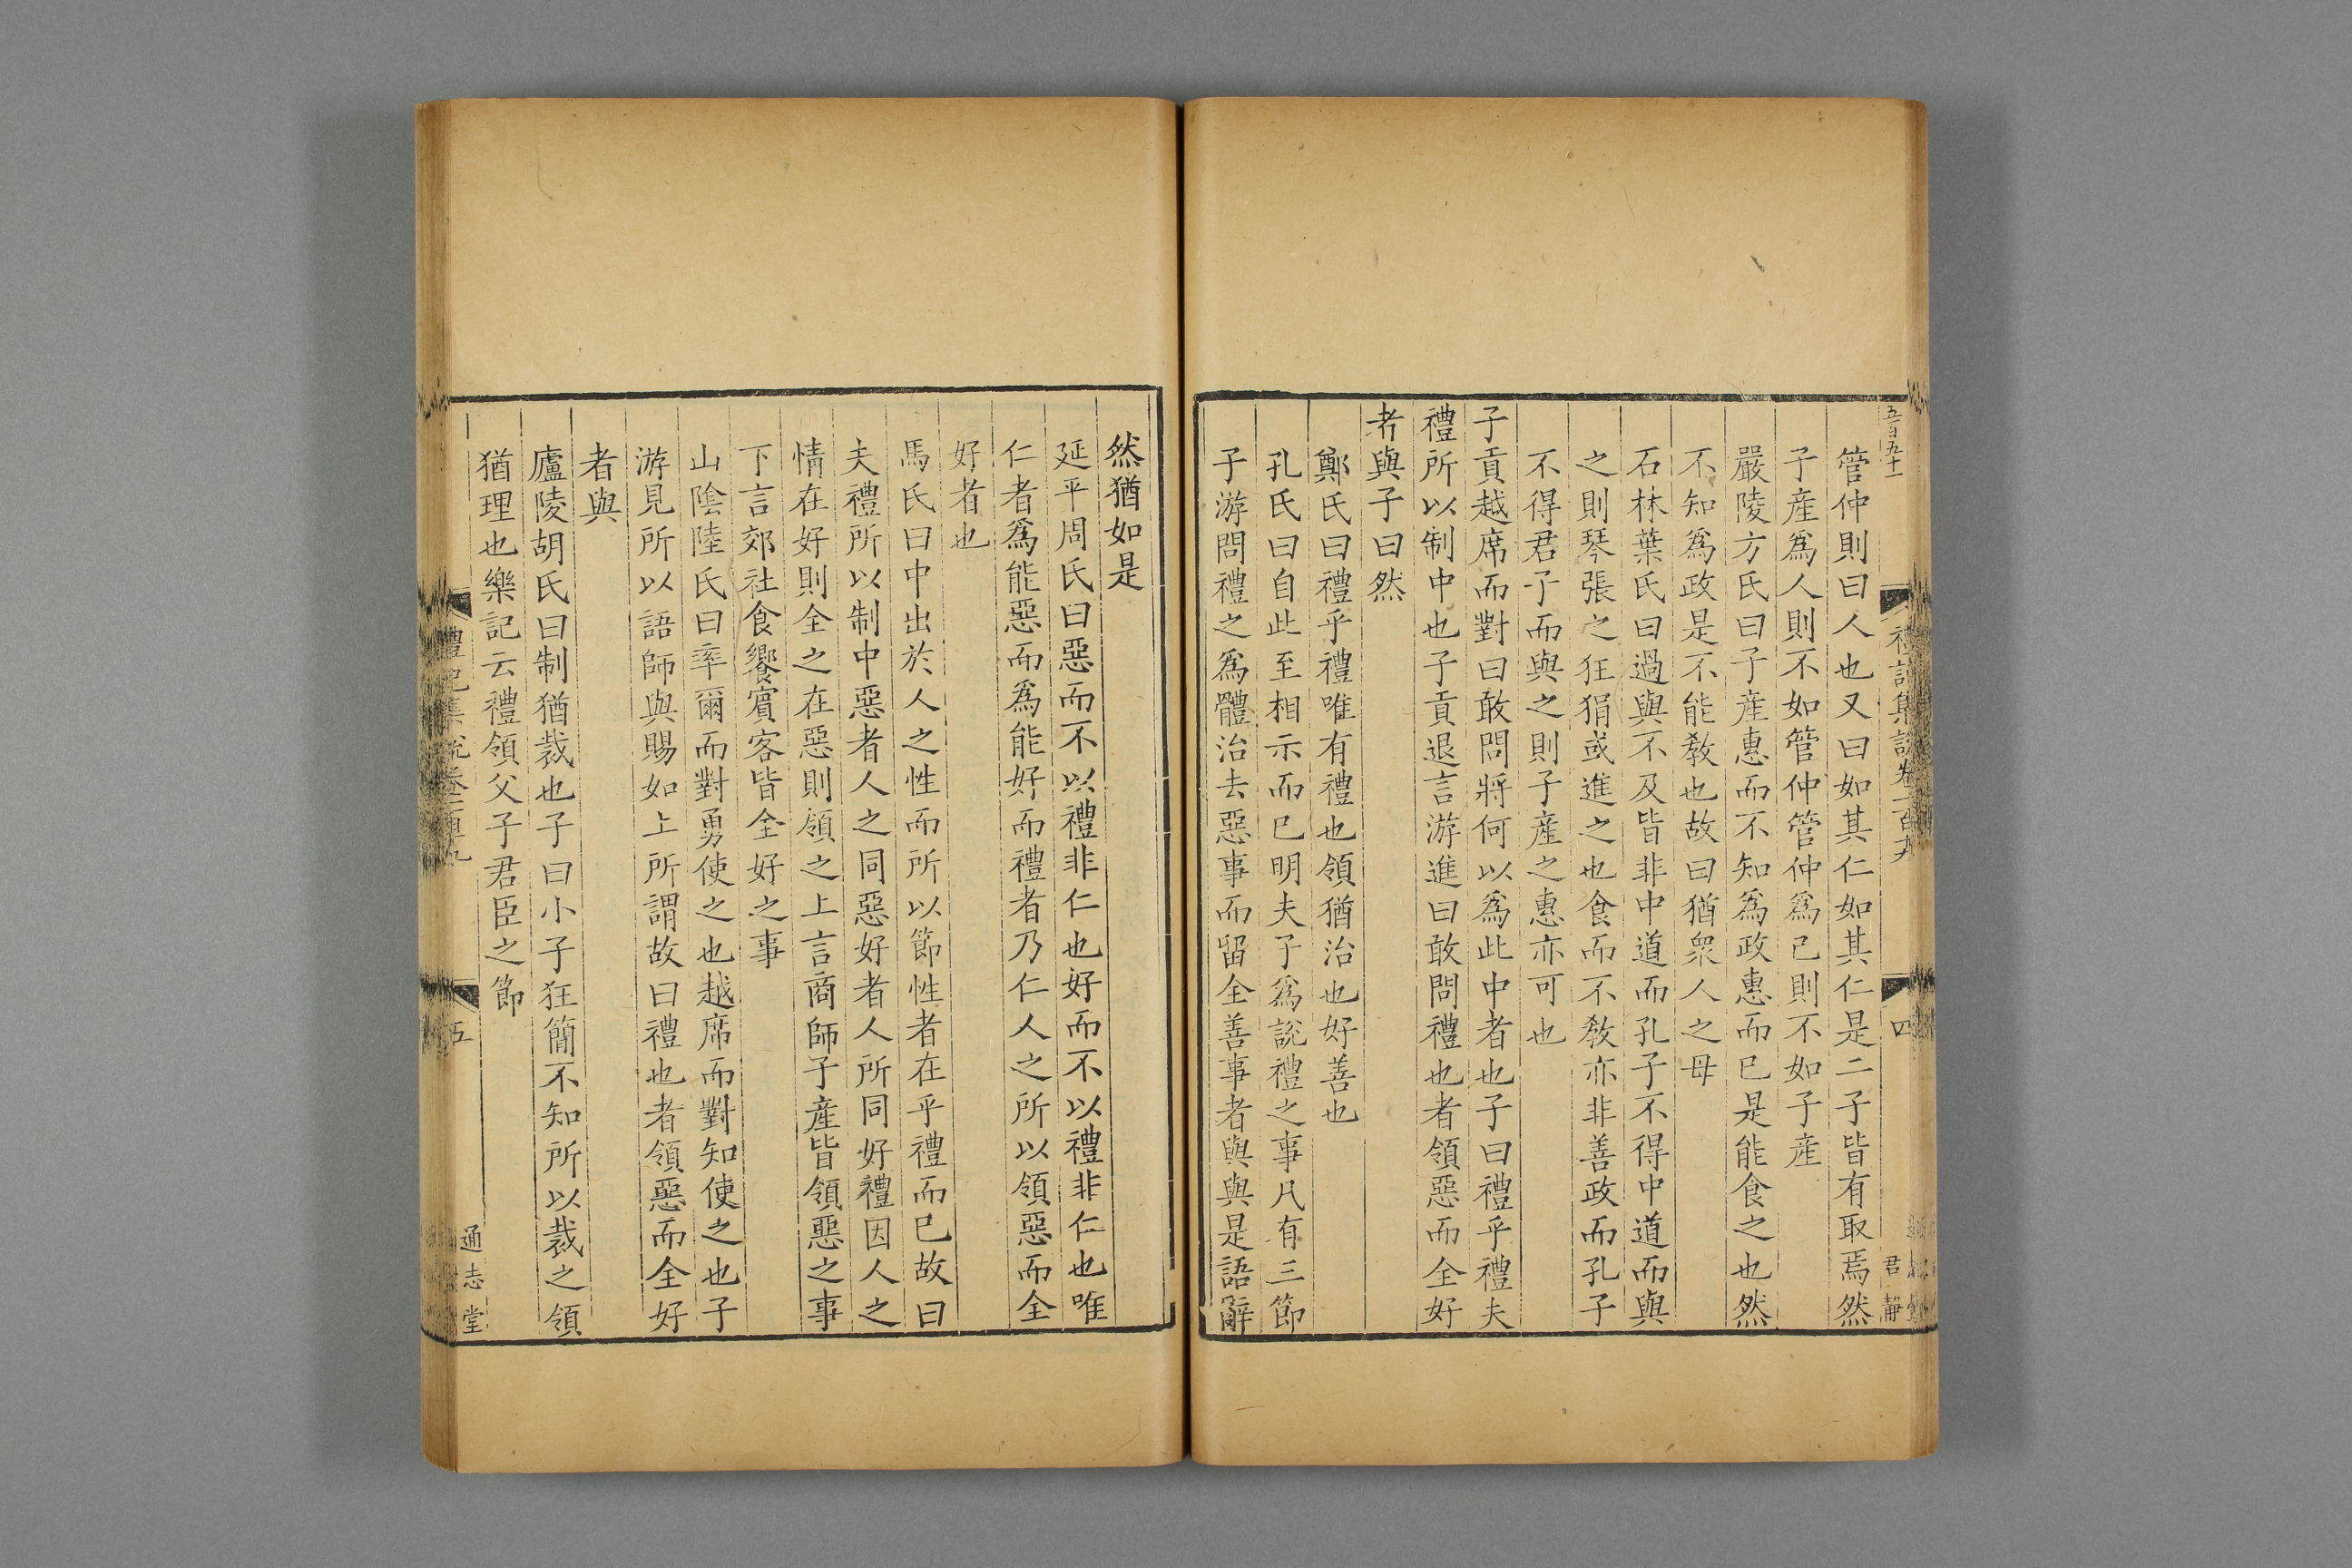 五百五十一
禮記集說卷一百九
四
君靜
管仲則曰人也又曰如其仁如其仁是二子皆有取焉然
子產爲人則不如管仲管仲爲己則不如子產
嚴陵方氏曰子產惠而不知爲政惠而已是能食之也然
不知爲政是不能敎也故曰猶衆人之母
石林葉氏曰過與不及皆非中道而孔子不得中道而與
之則琴張之狂狷或進之也食而不敎亦非善政而孔子
不得君子而與之則子產之惠亦可也
子貢越席而對曰敢問將何以爲此中者也子曰禮乎禮夫
禮所以制中也子貢退言游進曰敢問禮也者領惡而全好
者與子曰然
鄭氏曰禮乎禮唯有禮也領猶治也好善也
孔氏曰自此至相示而已明夫子爲說禮之事凡有三節
子游問禮之爲體治去惡事而留全善事者與與是語辭
然猶如是
延平周氏曰惡而不以禮非仁也好而不以禮非仁也唯
仁者爲能惡而爲能好而禮者乃仁人之所以領惡而全
好者也
馬氏曰中出於人之性而所以節性者在乎禮而已故曰
夫禮所以制中惡者人之同惡好者人所同好禮因人之
情在好則全之在惡則領之上言商師子產皆領惡之事
下言郊社食饗賓客皆全好之事
山陰陸氏曰率爾而對勇使之也越席而對知使之也子
游見所以語師與賜如上所謂故曰禮也者領惡而全好
者與
廬陵胡氏曰制猶裁也子曰小子狂簡不知所以裁之領
猶理也樂記云禮領父子君臣之節
禮記集說卷一百九
五
通志堂